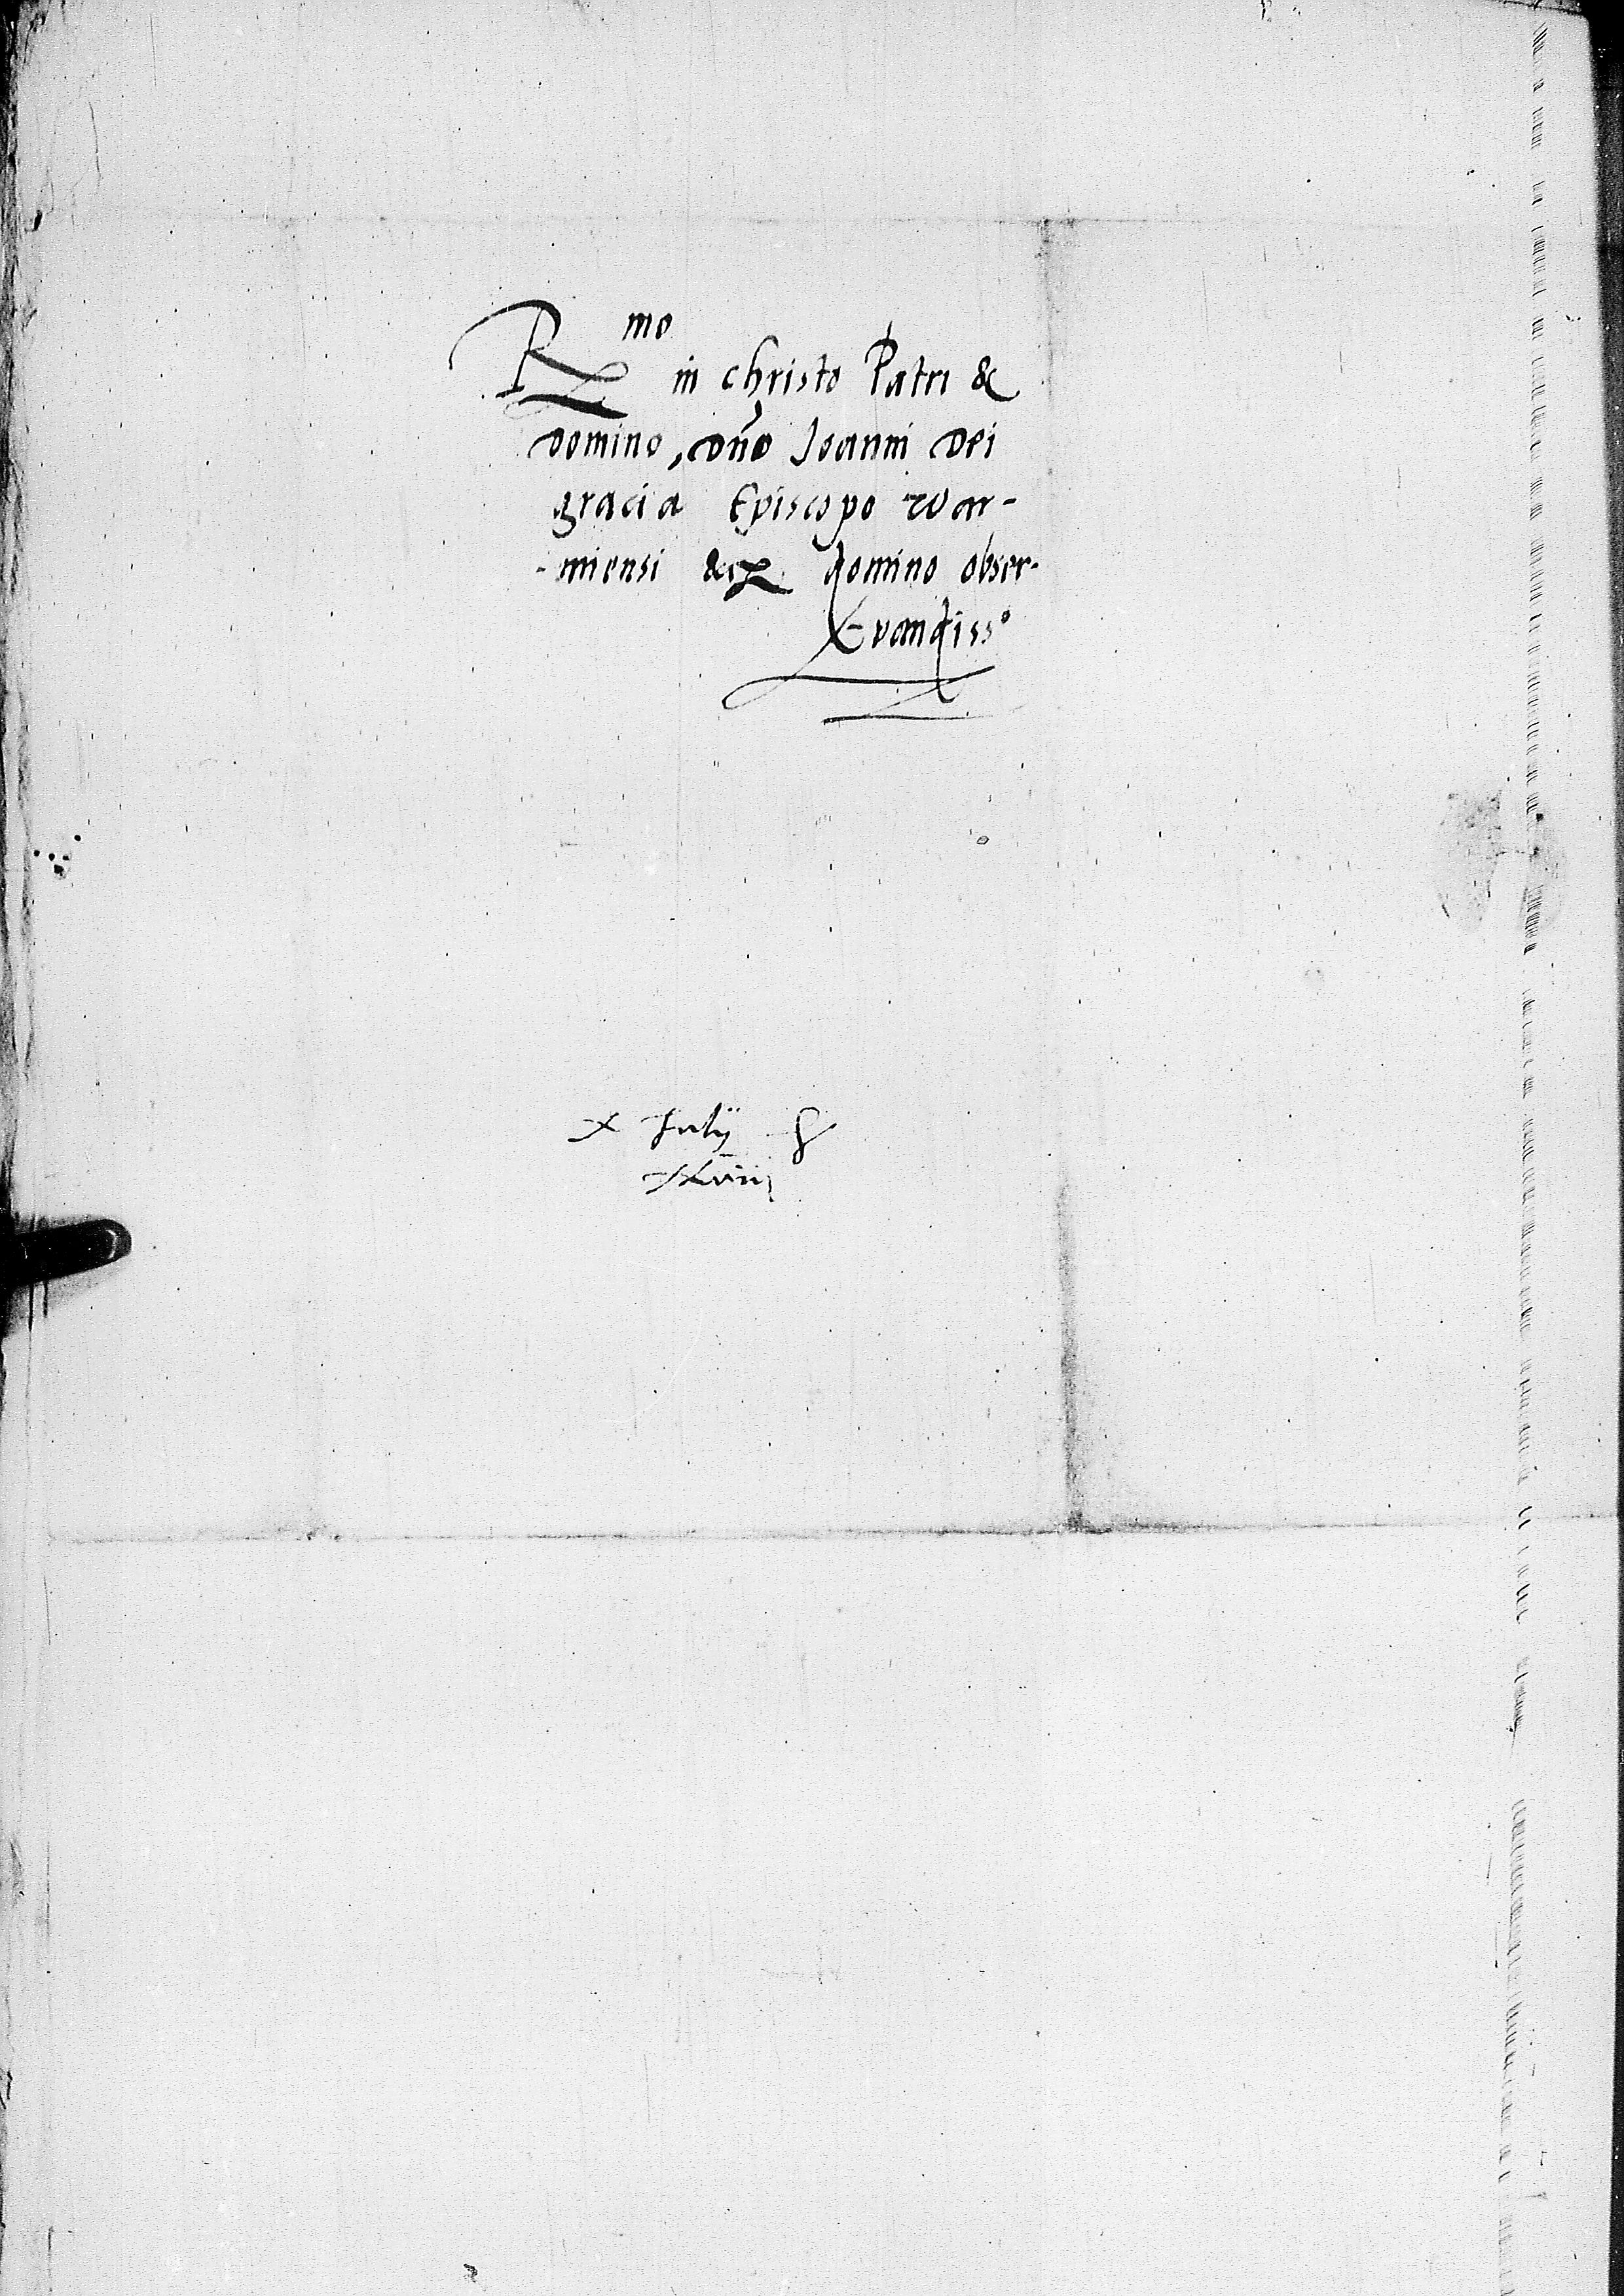 Rmo in christo Patri &
domino, dno Ioanni dei
gracia Episcopo War-
-miensi &c domino obser-
vandisso
x Julij
xlviij